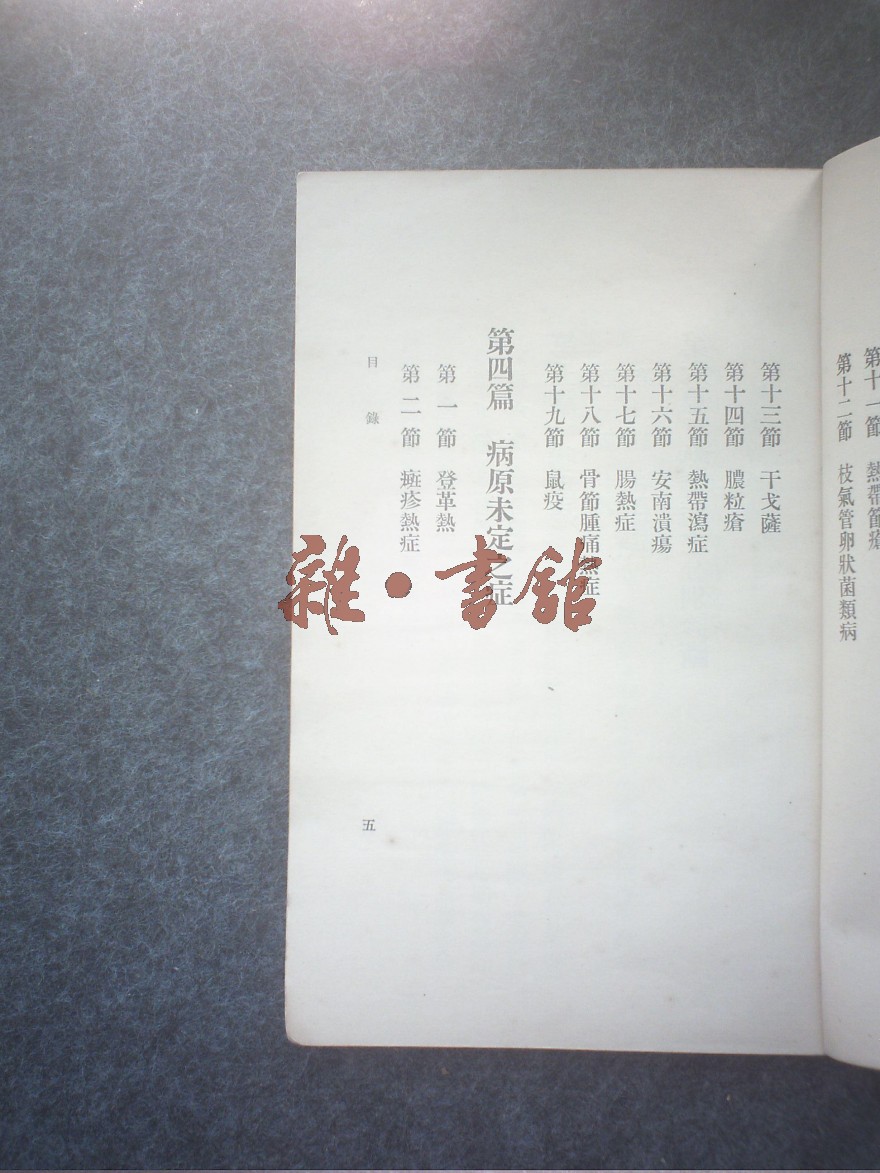 第十一節　熱帶節瘡
第十二節　枝氣管卵狀菌類病
第十三節　干戈薩
第十四節　膿粒瘡
第十五節　熱帶瀉症
第十六節　安南潰瘍
第十七節　腸熱症
第十八節　骨節腫痛熱症
第十九節　鼠疫
第四篇　病原未定之症
第一節　登革熱
第二節　斑疹熱症
目錄
五
雜·書館